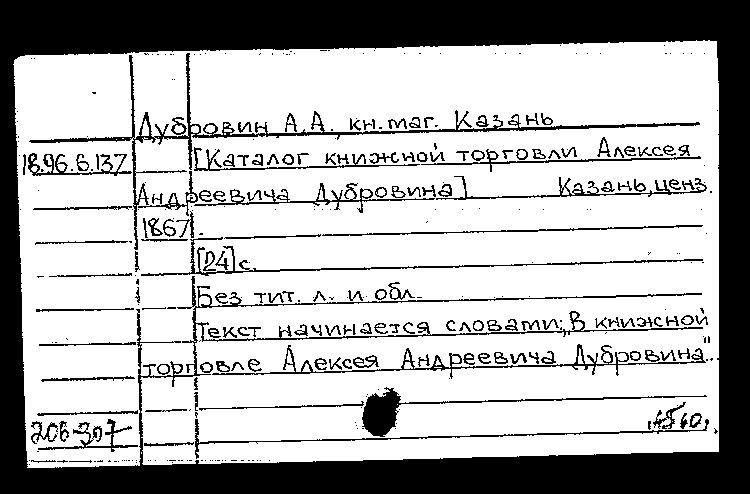 Дубровин А.А., кн. маг. Казань
18.96.6.137 [Каталог книжной торговли Алексея
Андреевича Дубровина] Казань, ценз.
1867.
[24] с.
Без тит. л. и обл.
Текст начинается словами: „В книжной
торговле Алексея Андреевича Дубровина"..
206-307